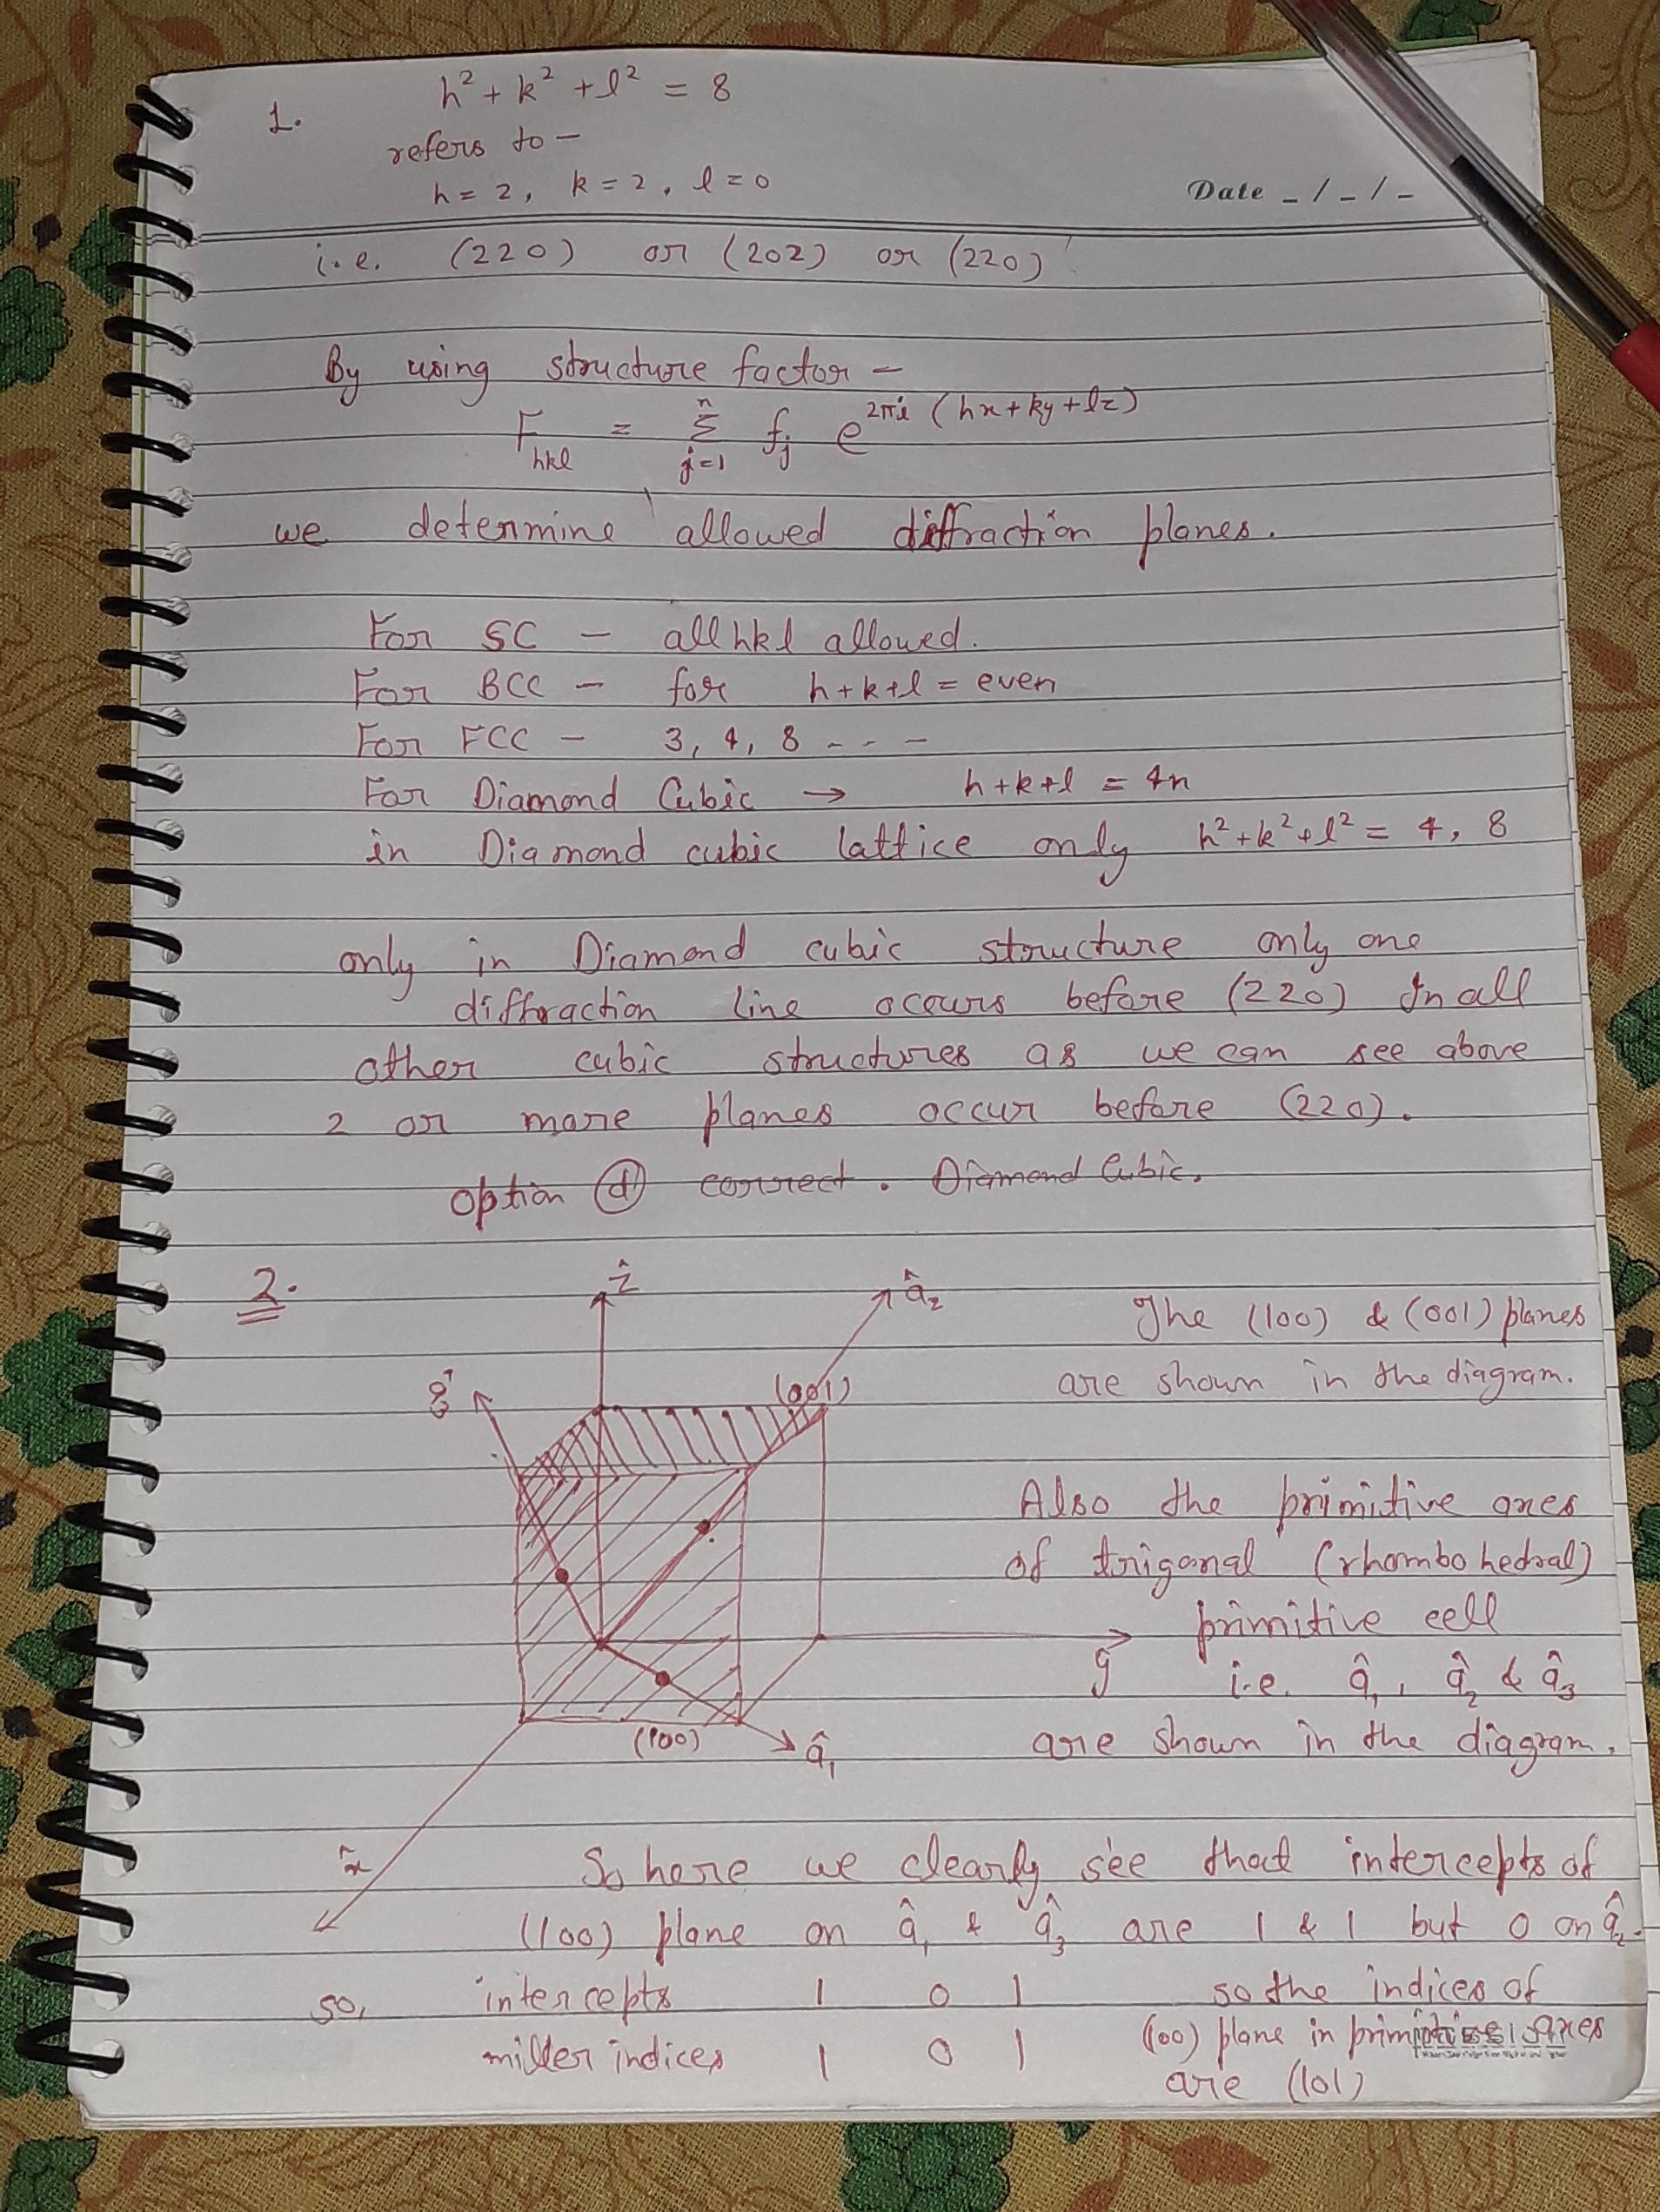 1.
h² + k² + l² = 8
refers to –
h = 2, k = 2, l = 0
Date _ / _ / _
i.e. (220) or (202) or (220)
By using structure factor –
F_hkl = Σ_{j=1}^{n} f_j e^{2πi (hx + ky + lz)}
we determine allowed diffraction planes.
For SC – all hkl allowed.
For BCC – for h+k+l = even
For FCC – 3, 4, 8 - - -
For Diamond Cubic → h+k+l = 4n
in Diamond cubic lattice only h²+k²+l² = 4, 8
only in Diamond cubic structure only one
diffraction line occurs before (220) In all
other cubic structures as we can see above
2 or more planes occur before (220).
option (d) correct. Diamond Cubic.
2.
ẑ
â₂
The (100) & (001) planes
are shown in the diagram.
(001)
Also the primitive axes
of trigonal (rhombohedral)
primitive cell
ŷ
i.e. â₁, â₂ & â₃
(100)
â₁
are shown in the diagram.
x̂
So here we clearly see that intercepts of
(100) plane on â₁ & â₃ are 1 & 1 but 0 on â₂.
so, intercepts 1 0 1 so the indices of
miller indices 1 0 1 (100) plane in primitive axes
are (101)